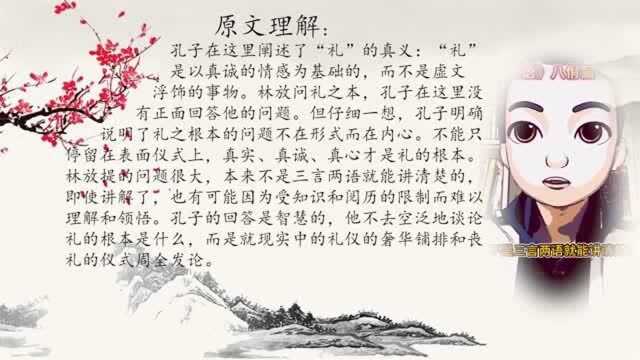 原文理解：
孔子在这里阐述了“礼”的真义：“礼”
是以真诚的情感为基础的，而不是虚文
浮饰的事物。林放问礼之本，孔子在这里没
有正面回答他的问题。但仔细一想，孔子明确
说明了礼之根本的问题不在形式而在内心。不能只
停留在表面仪式上，真实、真诚、真心才是礼的根本。
林放提的问题很大，本来不是三言两语就能讲清楚的，
即使讲解了，也有可能因为受知识和阅历的限制而难以
理解和领悟。孔子的回答是智慧的，他不去空泛地谈论
礼的根本是什么，而是就现实中的礼仪的奢华铺排和丧
礼的仪式周全发论。
八佾
三言两语就能讲